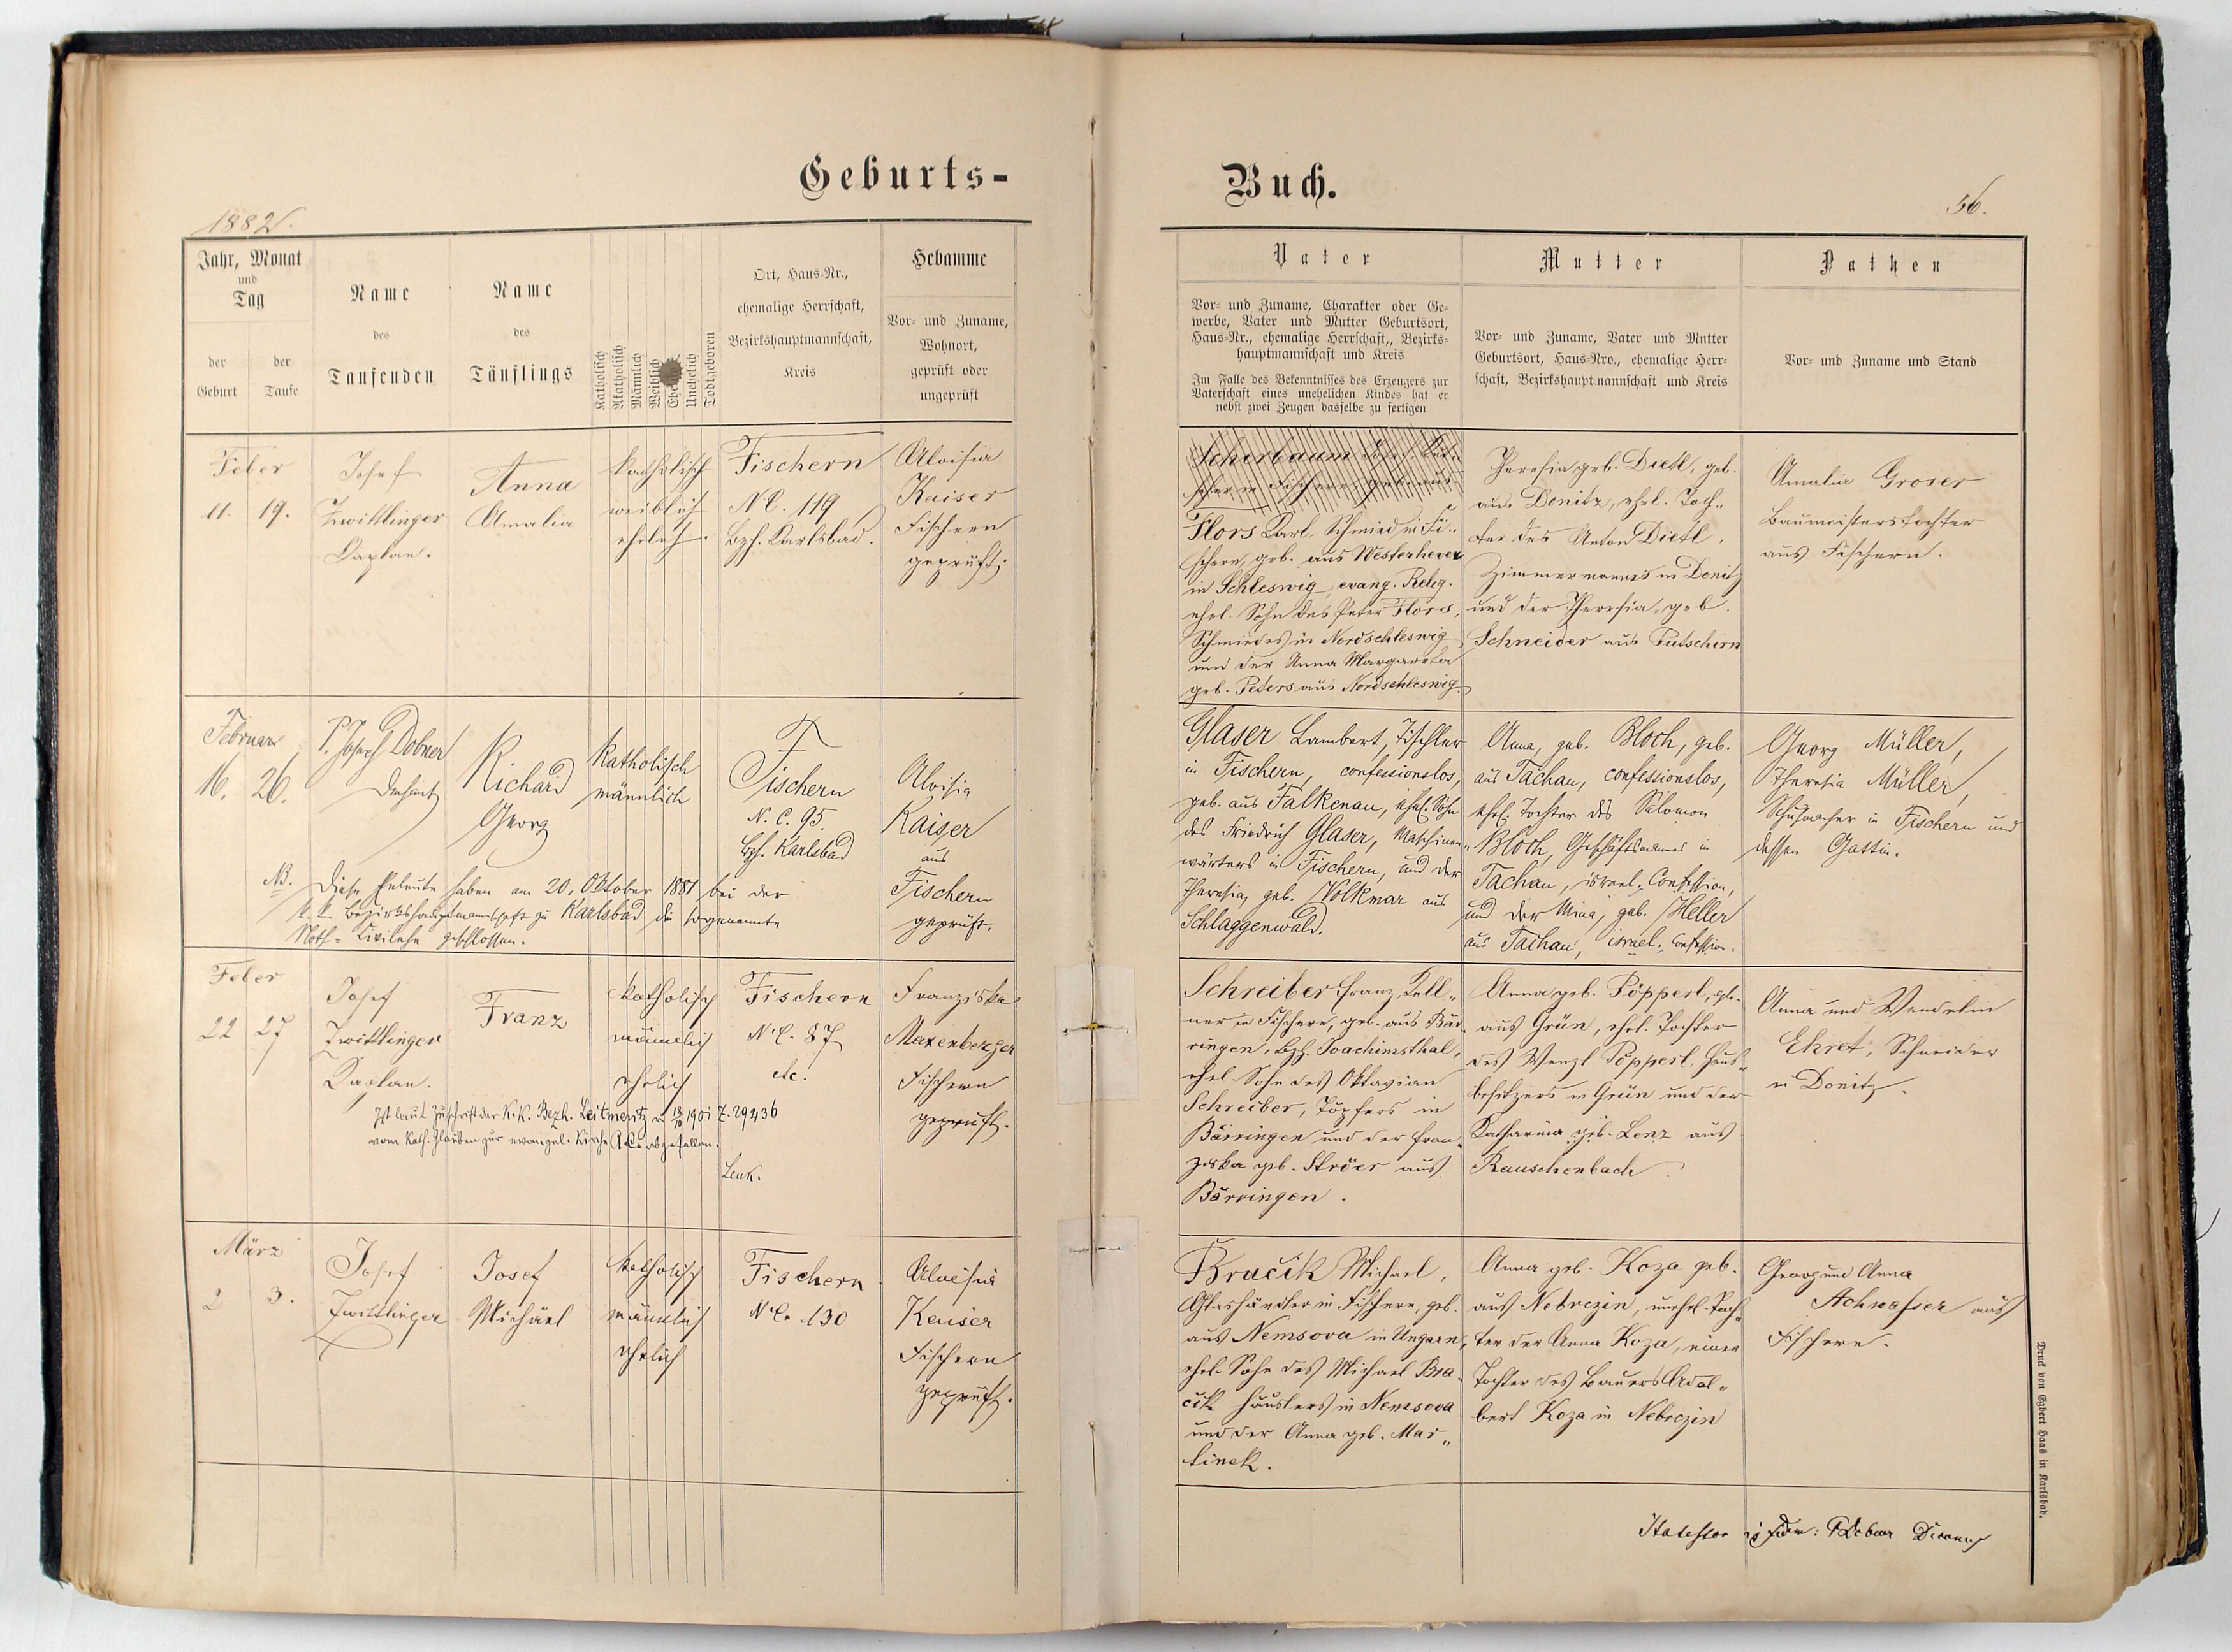 Geburts-
1882.
Jahr, Monat
und
Tag
der
Geburt
der
Taufe
Name
des
Taufenden
Name
des
Täuflings
Katholisch
Akatholisch
Männlich
Weiblich
Unehelich
Todtgeboren
Ort, Haus-Nr.,
ehemalige Herrschaft,
Bezirkshauptmannschaft,
Kreis
Hebamme
Vor- und Zuname,
Wohnort,
geprüft oder
ungeprüft
Feber
11. 19.
Josef
Zwittlinger
Kaplan.
Anna
Amalia
katholisch
weiblich
ehelich.
Fischern
NC. 119
Bzh. Karlsbad.
Aloisia
Kaiser
Fischern
geprüft.
Februar
16. 26.
P. Josef Dobner
Dechant
Richard
Georg
Katholisch
männlich
Fischern
N. C. 95.
Bzh. Karlsbad
Aloisia
Kaiser
aus
Fischern
geprüft.
NB. Diese Eheleute haben am 20. Oktober 1881 bei der
k. k. Bezirkshauptmannschaft zu Karlsbad die sogenannte
Noth-Civilehe geschlossen.
Feber
22 27
Josef
Zwittlinger
Kaplan.
Franz
katholisch
männlich
ehelich
Fischern
NC. 87
etc.
Franziska
Maxenberger
Fischern
geprüft.
Ist laut Zuschrift der K. K. Bezh. Leitmeritz v. 1901 Z. 29436
vom kath. Glauben zur evangel. Kirche A. C. abgefallen.
Lenk.
März
2 3.
Josef
Zwittlinger
Josef
Michael
katholisch
männlich
ehelich
Fischern
NC. 130
Aloisia
Kaiser
Fischern
geprüft.
Buch.
56.
Vater
Vor- und Zuname, Charakter oder Ge-
werbe, Vater und Mutter Geburtsort,
Haus-Nr., ehemalige Herrschaft,, Bezirks-
hauptmannschaft und Kreis
Im Falle des Bekenntnisses des Erzeugers zur
Vaterschaft eines unehelichen Kindes hat er
nebst zwei Zeugen dasselbe zu fertigen
Mutter
Vor- und Zuname, Vater und Mutter
Geburtsort, Haus-Nro., ehemalige Herr-
schaft, Bezirkshauptmannschaft und Kreis
Pathen
Vor- und Zuname und Stand
Scherbaum Josef
in Fischern, geb. aus
Flors Karl, Schmied in Fi-
schern, geb. aus Westerhever
in Schleswig, evang. Relig.
ehel. Sohn des Peter Flors,
Schmiedes in Nordschleswig
und der Anna Margareta
geb. Peters aus Nordschleswig.
Theresia geb. Dietl, geb.
aus Donitz, ehel. Toch-
ter des Anton Dietl,
Zimmermanns in Donitz
und der Theresia geb.
Schneider aus Putschirn
Amalia Groser
Baumeisterstochter
aus Fischern.
Glaser Lambert, Tischler
in Fischern, confessionslos,
geb. aus Falkenau, ehel. Sohn
des Friedrich Glaser, Maschinen-
wärters in Fischern, und der
Theresia, geb. Volkmar aus
Schlaggenwald.
Anna, geb. Bloch, geb.
aus Tachau, confessionslos,
ehel. Tochter des Salomon
Bloch, Geschäftsmannes in
Tachau, israel. Confession,
und der Mina, geb. Heller
aus Tachau, israel. Confession.
Georg Müller,
Theresia Müller,
Schuhmacher in Fischern und
dessen Gattin.
Schreiber Franz, Kell-
ner in Fischern, geb. aus Bär-
ringen, Bzh. Joachimsthal,
ehel. Sohn des Oktavian
Schreiber, Töpfers in
Bärringen und der Fran-
ziska geb. Ströer aus
Bärringen.
Anna geb. Pöpperl, geb.
aus Grün, ehel. Tochter
des Wenzl Pöpperl, Haus-
besitzers in Grün und der
Katharina geb. Lenz aus
Rauschenbach.
Anna und Wendelin
Ehret, Schneider
in Donitz.
Bračik Michael,
Glashändler in Fischern, geb.
aus Nemsova in Ungarn,
ehel. Sohn des Michael Bra-
čik Häuslers in Nemsova
und der Anna geb. Mar-
tinek.
Anna geb. Koza geb.
aus Nebrczin, unehel. Toch-
ter der Anna Koza, einer
Tochter des Bauers Adal-
bert Koza in Nebrczin
Georg und Anna
aus
Fischern.
Druck von Egbert Haas in Karlsbad.